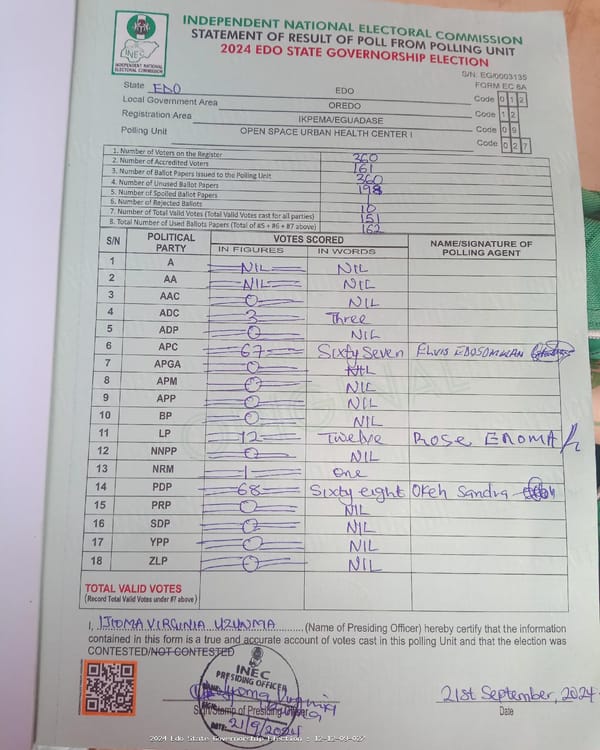 INDEPENDENT NATIONAL ELECTORAL COMMISSION
STATEMENT OF RESULT OF POLL FROM POLLING UNIT
2024 EDO STATE GOVERNORSHIP ELECTION
INEC
INDEPENDENT NATIONAL ELECTORAL COMMISSION
S/N: EG/0003135
FORM EC 8A
State EDO EDO Code 0 1 2
Local Government Area OREDO Code 1 2
Registration Area IKPEMA/EGUADASE Code 0 9
Polling Unit OPEN SPACE URBAN HEALTH CENTER I Code 0 2 7
1. Number of Voters on the Register 360
2. Number of Accredited Voters 161
3. Number of Ballot Papers Issued to the Polling Unit 360
4. Number of Unused Ballot Papers 198
5. Number of Spoiled Ballot Papers 1
6. Number of Rejected Ballots 10
7. Number of Total Valid Votes (Total Valid Votes cast for all parties) 151
8. Total Number of Used Ballots Papers (Total of #5 + #6 + #7 above) 162
S/N POLITICAL PARTY VOTES SCORED NAME/SIGNATURE OF POLLING AGENT
IN FIGURES IN WORDS
1 A NIL NIL
2 AA NIL NIL
3 AAC 0 NIL
4 ADC 3 Three
5 ADP 0 NIL
6 APC 67 Sixty Seven ELVIS EDOSOMWAN
7 APGA 0 NIL
8 APM 0 NIL
9 APP 0 NIL
10 BP 0 NIL
11 LP 12 Twelve ROSE ENOMA
12 NNPP 0 NIL
13 NRM 1 one
14 PDP 68 Sixty eight Okeh Sandra
15 PRP 0 NIL
16 SDP 0 NIL
17 YPP 0 NIL
18 ZLP 0 NIL
ORIGINAL
TOTAL VALID VOTES
(Record Total Valid Votes under #7 above)
I, IJEOMA VIRGINIA UZUNMA (Name of Presiding Officer) hereby certify that the information
contained in this form is a true and accurate account of votes cast in this polling Unit and that the election was
CONTESTED/NOT CONTESTED
INEC
PRESIDING OFFICER
SIGN:
DATE: 21/9/2024
Sign/Stamp of Presiding Officer
21st September, 2024
Date
2024 Edo State Governorship Election : 12-12-09-027